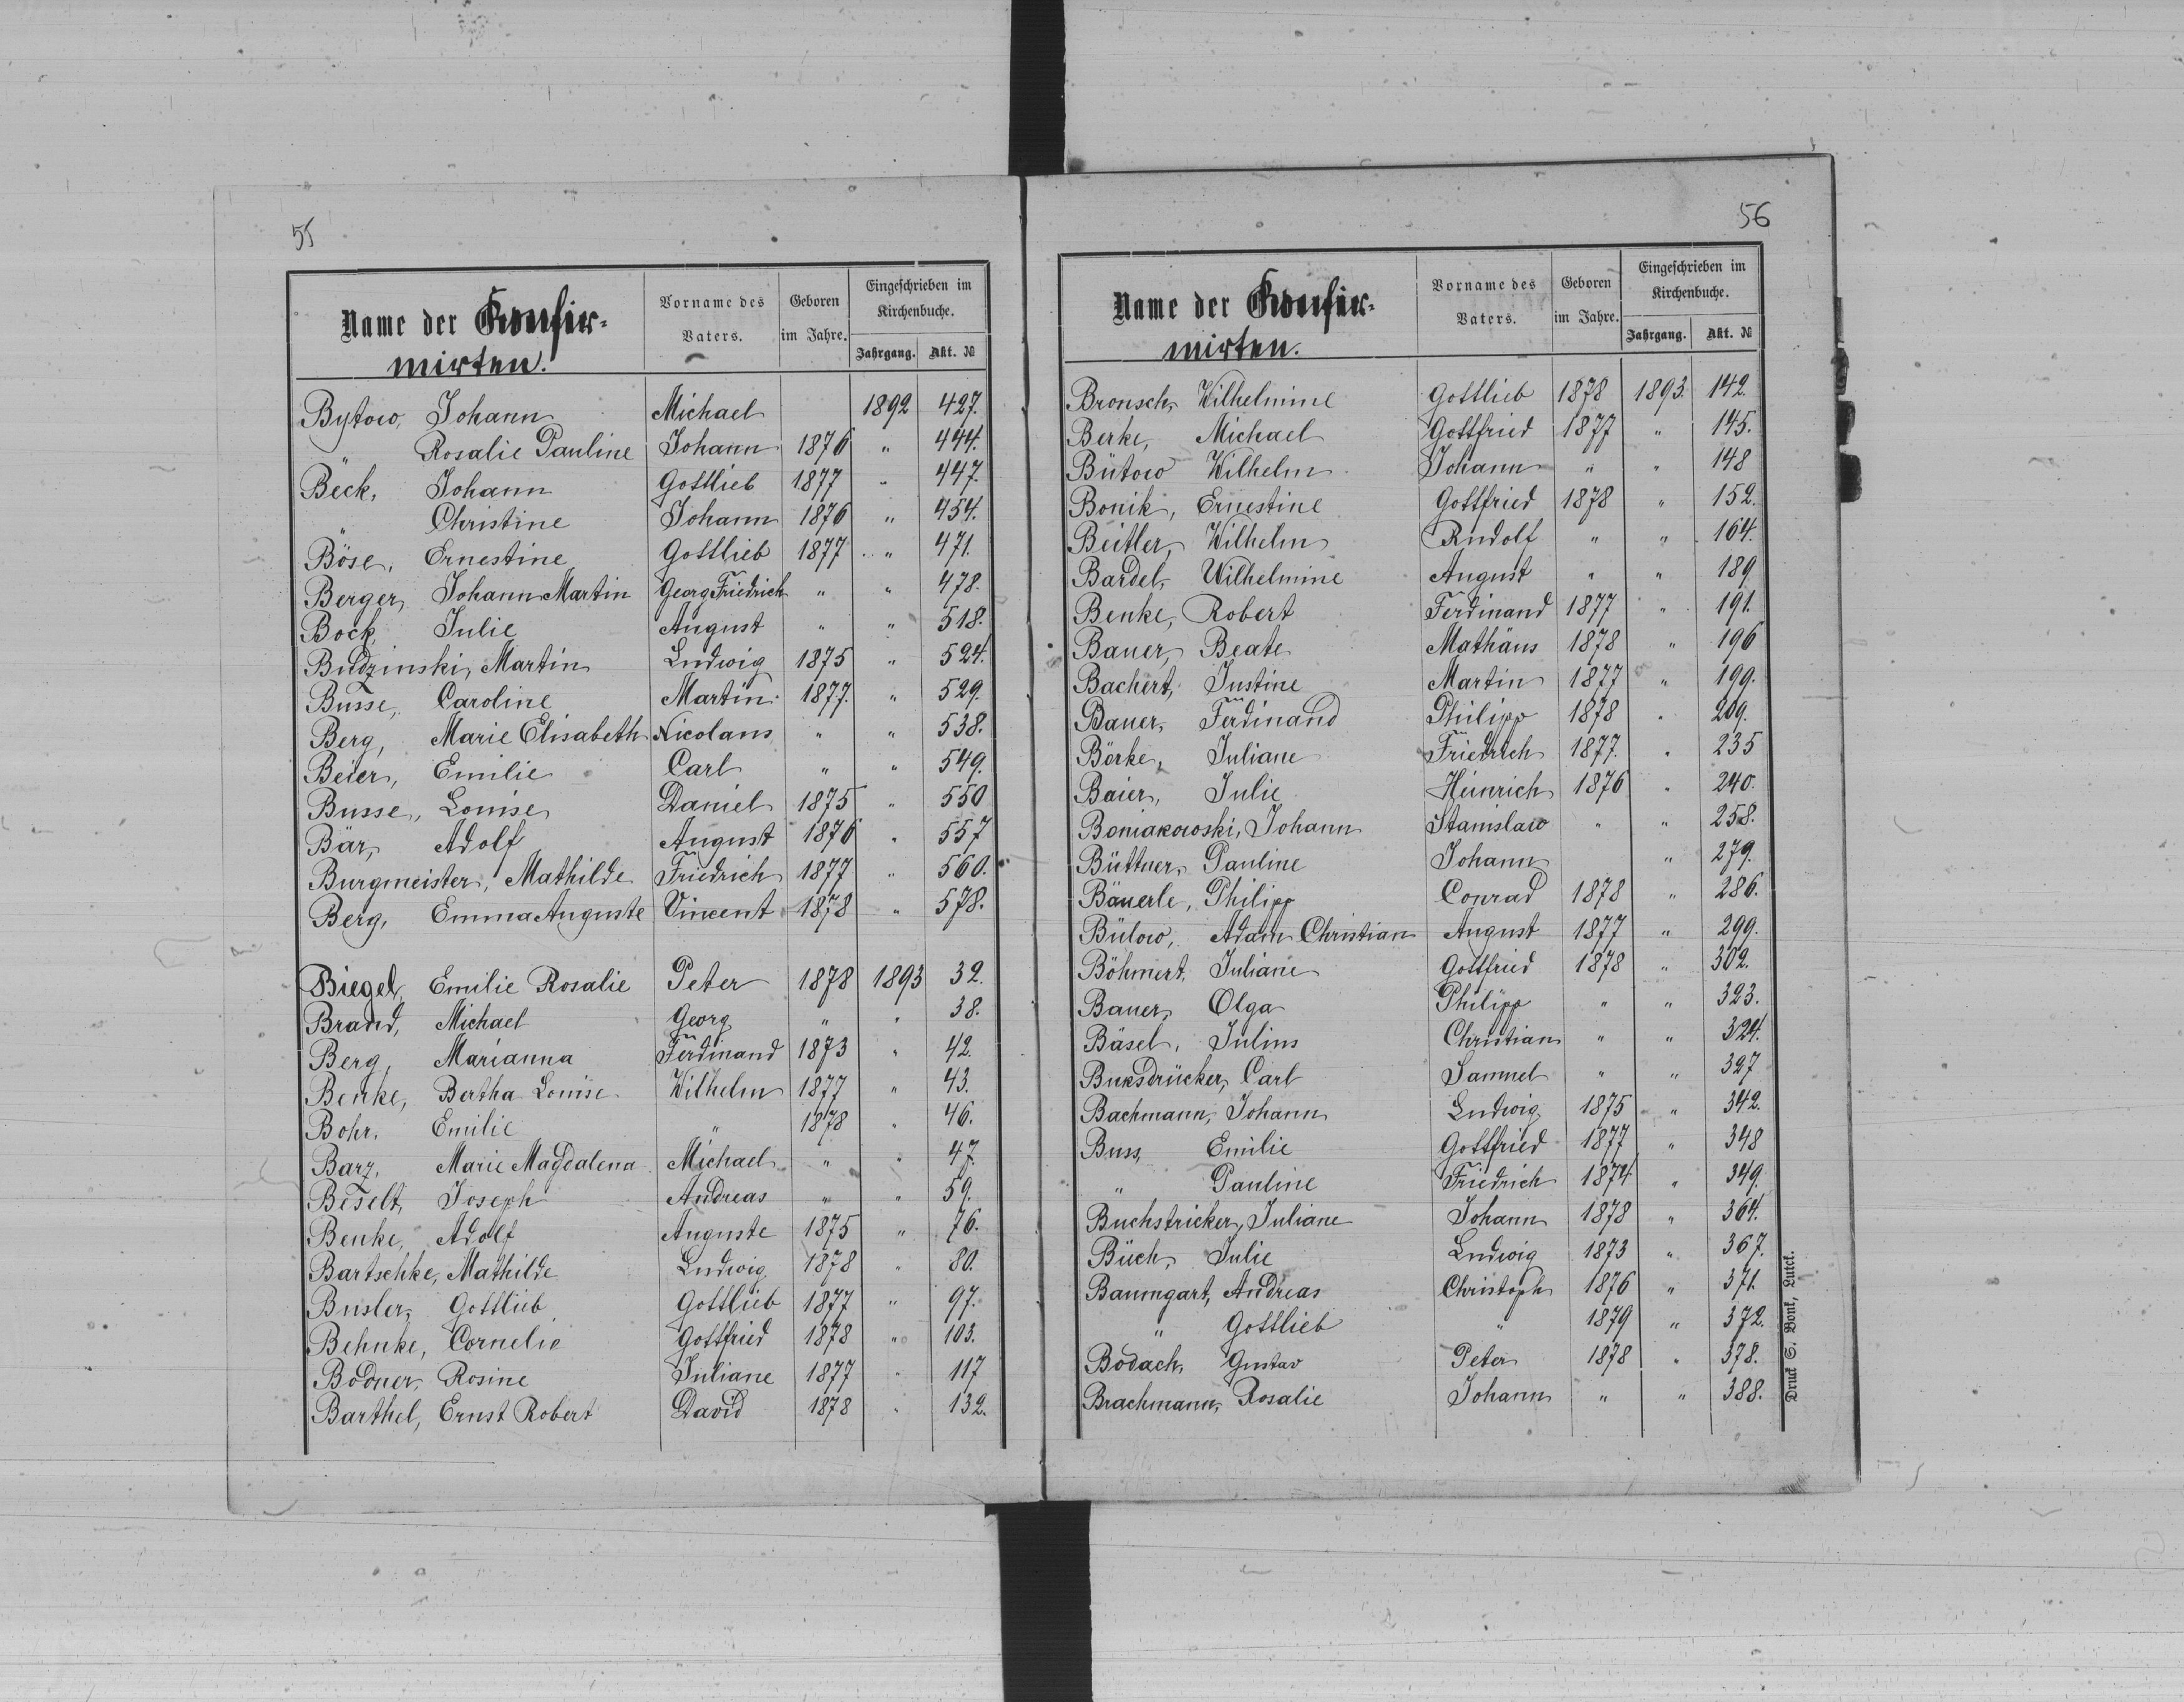 55
Name der Konfir-
mirten.
Vorname des
Vaters.
Geboren
im Jahre.
Eingeschrieben im
Kirchenbuche.
Jahrgang. Akt. №
Bytow, Johann Michael 1892 427.
" Rosalie Pauline Johann 1876 " 444.
Beck, Johann Gottlieb 1877 " 447.
" Christine Johann 1876 " 454.
Böse, Ernestine Gottlieb 1877 " 471.
Berger, Johann Martin Georg Friedrich " " 478.
Bock, Julie August " " 518.
Budzinski, Martin Ludwig 1875 " 524.
Busse, Caroline Martin 1877. " 529.
Berg, Marie Elisabeth Nicolaus " " 538.
Beier, Emilie Carl " " 549.
Busse, Louise Daniel 1875 " 550
Bär, Adolf August 1876 " 557
Burgmeister, Mathilde Friedrich 1877 " 560.
Berg, Emma Auguste Vincent 1878 " 578.
Biegel, Emilie Rosalie Peter 1878 1893 32.
Brand, Michael Georg " " 38.
Berg, Marianna Ferdinand 1873 " 42.
Benke, Bertha Louise Wilhelm 1877 " 43.
Bohr, Emilie " 1878 " 46.
Barz, Marie Magdalena Michael " " 47.
Beselt, Joseph Andreas " " 59.
Benke, Adolf Auguste 1875 " 76.
Bartschke, Mathilde Ludwig 1878 " 80.
Busler, Gottlieb Gottlieb 1877 " 97.
Behnke, Cornelie Gottfried 1878 " 103.
Bodner, Rosine Juliane 1877 " 117
Barthel, Ernst Robert David 1878 " 132.
56
Name der Konfir-
mirten.
Vorname des
Vaters.
Geboren
im Jahre.
Eingeschrieben im
Kirchenbuche.
Jahrgang. Akt. №
Bronsch, Wilhelmine Gottlieb 1878 1893. 142.
Berke, Michael Gottfried 1877 " 145.
Bütow Wilhelm Johann " " 148
Bonik, Ernestine Gottfried 1878 " 152.
Beitler, Wilhelm Rudolf " " 164.
Bardel, Wilhelmine August " " 189
Benke, Robert Ferdinand 1877 " 191.
Bauer, Beate Mathäus 1878 " 196
Bachert, Justine Martin 1877 " 199.
Bauer, Ferdinand Philipp 1878 " 209.
Börke, Juliane Friedrich 1877. " 235
Baier, Julie Heinrich 1876 " 240.
Boniakowski, Johann Stanislaw " " 258.
Büttner, Pauline Johann " 279.
Bäuerle, Philipp Conrad 1878 " 286.
Bülow, Adam Christian August 1877 " 299.
Böhmert, Juliane Gottfried 1878 " 302.
Bauer, Olga Philipp " " 323.
Bäsel, Julius Christian " " 324.
Buksdrücker, Carl Samuel " " 327
Bachmann, Johann Ludwig 1875 " 342.
Buss, Emilie Gottfried 1877 " 348
" Pauline Friedrich 1874 " 349.
Buchstricker, Juliane Johann 1878 " 364.
Büch, Julie Ludwig 1873 " 367.
Baumgart, Andreas Christoph 1876 " 371.
" Gottlieb " 1879 " 372.
Bodach, Gustav Peter 1878 " 378.
Brachmann, Rosalie Johann " " 388.
Druck S. Bonk, Lutck.